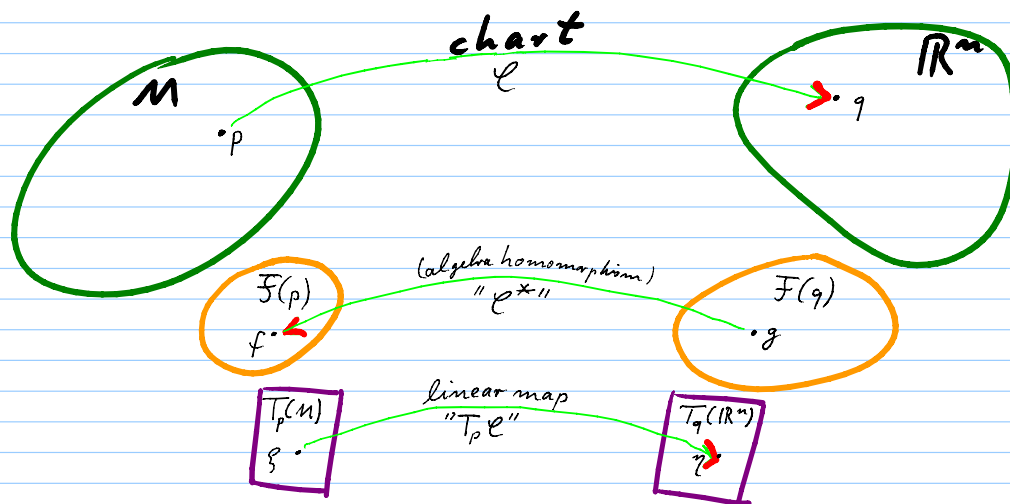 chart
φ
M
ℝⁿ
p
q
(algebra homomorphism)
"φ*"
ℱ(p)
ℱ(q)
f
g
linear map
"Tₚφ"
Tₚ(M)
T_q(ℝⁿ)
ξ
η